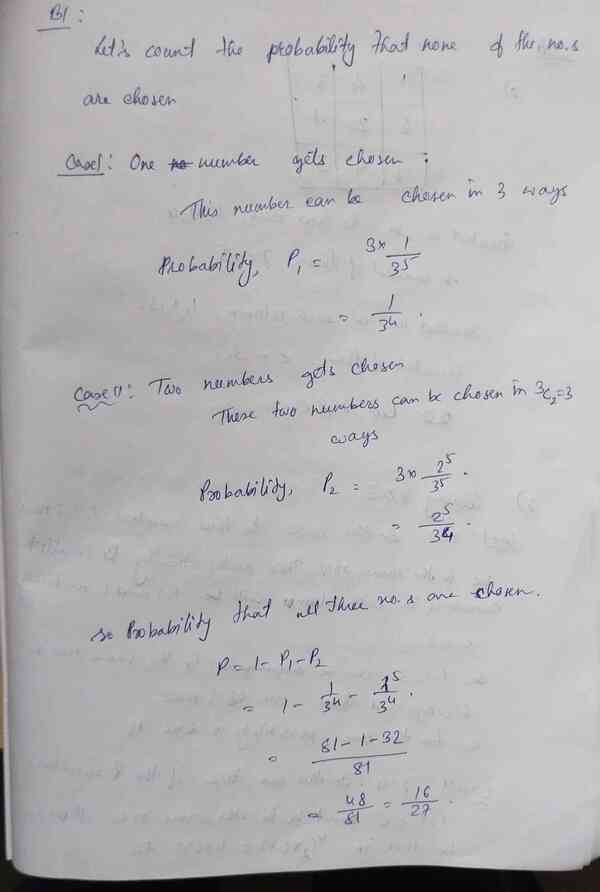 B1 :
Let's count the probability that none of the no.s
are chosen
Case I : One number gets chosen :
This number can be chosen in 3 ways
Probability, P₁ = 3 × 1/3⁵
= 1/3⁴ .
Case II : Two numbers gets chosen
These two numbers can be chosen in 3C₂=3
ways
Probability, P₂ = 3 × 2⁵/3⁵ .
= 2⁵/3⁴ .
so Probability that all three no.s are chosen.
P = 1 - P₁ - P₂
= 1 - 1/3⁴ - 2⁵/3⁴ .
= 81 - 1 - 32/81
= 48/81 = 16/27 .